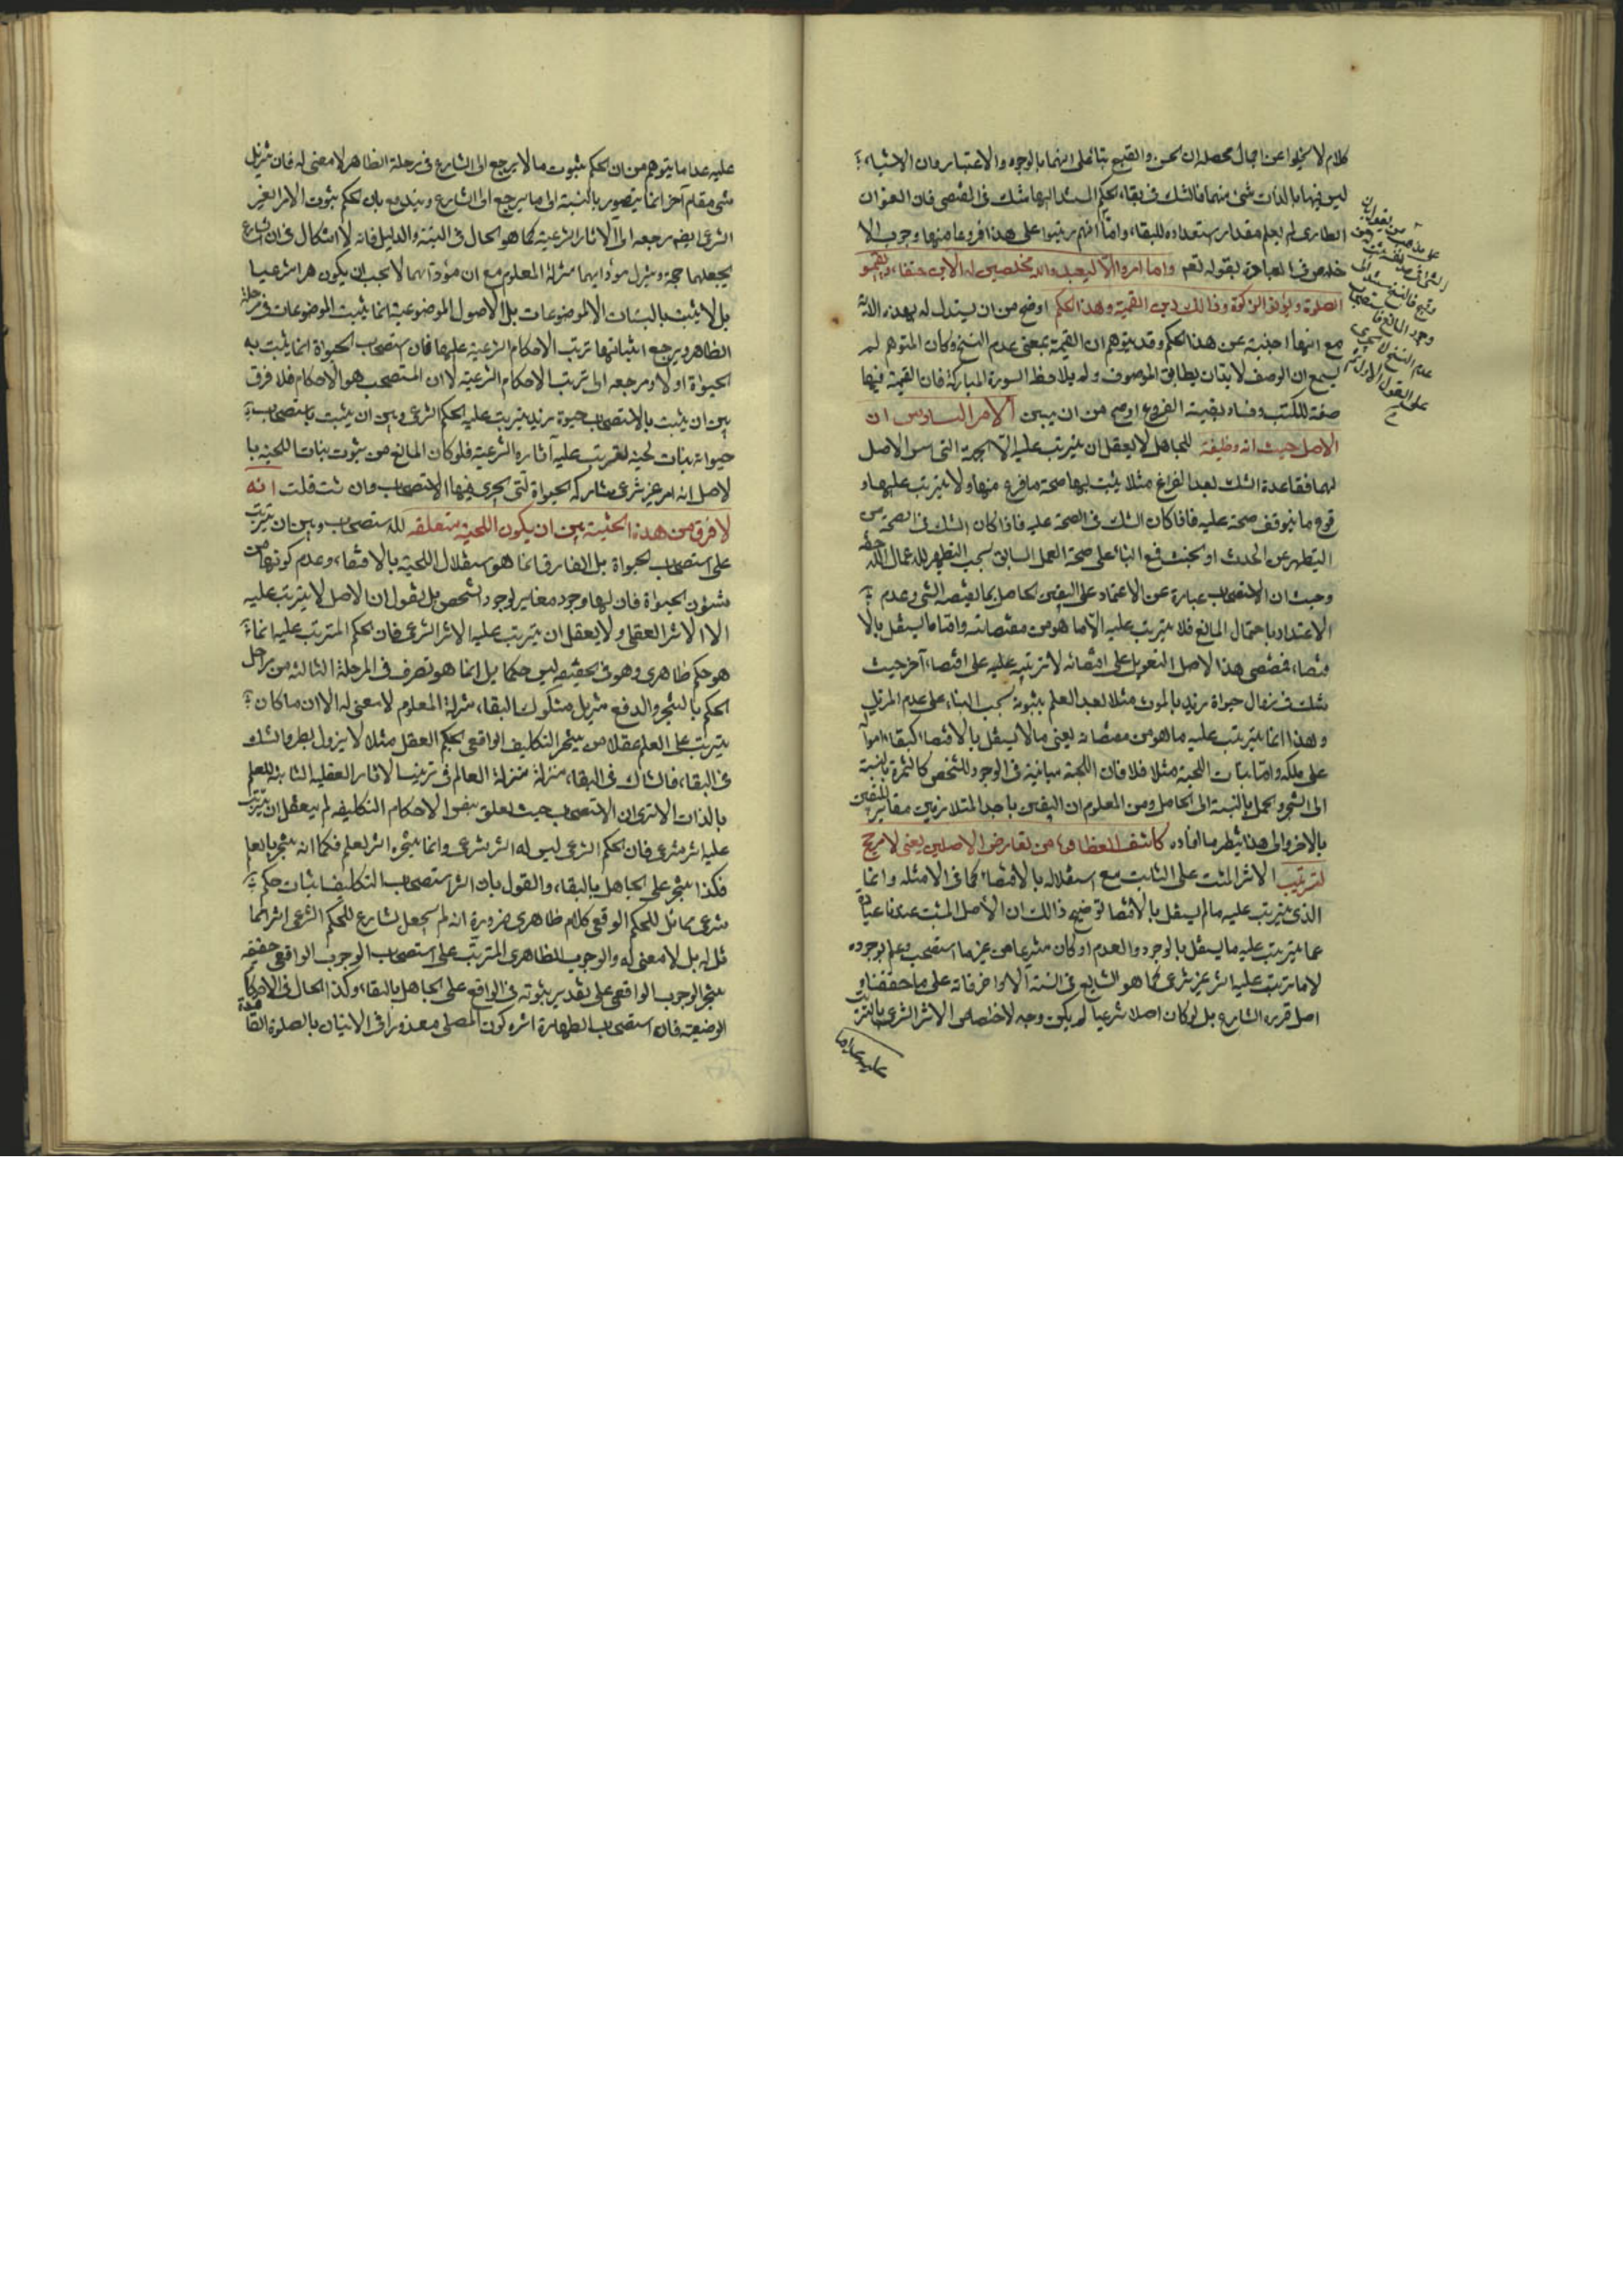 كلام لا يخلوا عن اجمال محصله ان الحسن والقبح بناء على انهما بالوجوه والاعتبار وان الاشياء
ليس فيها بالذات شئ منهما فالشك فى بقاء الحكم المستند اليها شك فى المقتضى فان العنوان
الطارى لم يعلم مقدار استعداده للبقاء واما انهم رتبوا على هذا فروعا منها وجوب الا
خلاص فى العبادة بقوله تعالى وما امروا الا ليعبدوا الله مخلصين له الدين حنفاء ويقيموا
الصلوة ويؤتوا الزكوة وذالك دين القيمة وهذا الحكم اوضح من ان يستدل له بهذه الاية
مع انها اجنبية عن هذا الحكم وقد يتوهم ان القيمة بمعنى عدم النسخ وكان المتوهم لم
يسمع ان الوصف لابد ان يطابق الموصوف ولم يلاحظ السورة المباركة فان القيمة فيها
صفة للكتب وفساد بقية الفروع اوضح من ان يبين الامر السادس ان
الاصل حيث انه وظيفة للجاهل لا يعقل ان يترتب عليه الا الجهة التى اسس الاصل
لها فقاعدة الشك بعد الفراغ مثلا يثبت بها صحة ما فرغ منها ولا يترتب عليها و
قوع ما يتوقف صحته عليه فاذا كان الشك فى الصحة من
التطهر عن الحدث او الخبث فمع البناء على صحة العمل السابق يجب التطهر للاعمال اللاحقة
وحيث ان الاستصحاب عبارة عن الاعتماد على اليقين الحاصل بما يقتضيه الشئ وعدم
الاعتداد باحتمال المانع فلا يترتب عليه الا ما هو من مقتضياته واما ما يستقل بالا
قتضاء فمقتضى هذا الاصل التعويل على اقتضائه لا ترتيبه عليه على اقتضاء آخر حيث
شك فى زوال حيوة زيد بالموت مثلا بعد العلم بثبوته يجب البناء على عدم المزيل
وهذا انما يترتب عليه ما هو من مقتضاته يعنى ما لا يستقل بالاقتضاء كبقاء امواله
على ملكه واما نبات اللحية مثلا فلا فان اللحية مباينة فى الوجود للشخص كالثمرة بالنسبة
الى الشجر والحمل بالنسبة الى الحامل ومن المعلوم ان اليقين باحد المتلازمين مغاير لليقين
بالاخر والى هذا ينظر ما افاده كاشف الغطاء من تعارض الاصلين يعنى لا مرجح
لترتيب الاثر المثبت على الثابت مع استقلاله بالاقتضاء كما فى الامثلة وانما
الذى يترتب عليه ما لم يستقل بالاقتضاء توضيح ذالك ان الاصل المثبت عندنا عبارة
عما يترتب عليه ما يستقل بالوجود والعدم او كان مشرعا من غير ما استصحب وعلم بوجوده
لا ما ترتب عليه اثر غير شرعى كما هو الشايع فى السنة الاواخر فانه على ما حققناه
اصل قرره الشارع بل لو كان اصلا شرعيا لم يكن وجه لاختصاص الاثر الشرعى بالترتب
عليه عدا ما
عليه عدا ما يتوهم من ان الحكم بثبوت ما لا يرجع الى الشارع فى مرحلة الظاهر لا معنى له فان تنزيل
شئ مقام آخر انما يتصور بالنسبة الى ما يرجع الى الشارع ويندفع بان الحكم بثبوت الامر الغير
الشرعى ايضا مرجعه الى الاثار الشرعية كما هو الحال فى البينة والدليل فانه لا اشكال فى ان الشارع
يجعلهما حجة وينزل مؤداهما منزلة المعلوم مع ان مؤداهما لا يجب ان يكون امرا شرعيا
بل لا يثبت بالبينات الا الموضوعات بل الاصول الموضوعية انما يثبت الموضوعات فى مرحلة
الظاهر ويرجع اثباتها ترتب الاحكام الشرعية عليها فان استصحاب الحيواة انما يثبت به
الحيواة اولا ومرجعه الى ترتب الاحكام الشرعية لا ان المستصحب هو الاحكام فلا فرق
بين ان يثبت بالاستصحاب حيوة زيد يترتب عليه الحكم الشرعى وبين ان يثبت باستصحاب
حيواته نبات لحيته لترتب عليه آثاره الشرعية فلو كان المانع من ثبوت نبات اللحية با
لاصل انه امر غير شرعى شاركه الحيواة التى اجرى فيها الاستصحاب وان شئت قلت انه
لا فرق من هذه الحيثية بين ان يكون اللحية متعلقة للاستصحاب وبين ان يترتب
على استصحاب الحيواة بل الفارق انما هو استقلال اللحية بالاقتضاء وعدم كونها من
شئون الحيواة فان لها وجود مغاير لوجود الشخص بل يقول ان الاصل لا يترتب عليه
الا الاثر العقلى ولا يعقل ان يترتب عليه الاثر الشرعى فان الحكم المترتب عليه انما
هو حكم ظاهرى وهو فى الحقيقة ليس حكما بل انما هو تصرف فى المرحلة الثالثة من مراحل
الحكم بالتنجز والدفع فتنزيل مشكوك البقاء منزلة المعلوم لا معنى له الا ان ما كان
يترتب على العلم عقلا من تنجز التكليف الواقعى بحكم العقل مثلا لا يزول بطرو الشك
فى البقاء فالشاك فى البقاء منزلة منزلة العالم فى ترتيب الاثار العقلية الثابتة للعلم
بالذات الا ترى ان الاستصحاب حيث تعلق بنفس الاحكام التكليفية لم يعقل ان يترتب
عليه اثر شرعى فان الحكم الشرعى ليس له اثر شرعى وانما تنجزه اثر العلم فكما انه تنجز بالعلم
فكذا تنجز على الجاهل بالبقاء والقول بان اثر استصحاب التكليف اثبات حكم
شرعى مماثل للحكم الواقعى كلام ظاهرى ضرورة انه لم يجعل الشارع للحكم الشرعى اثرا مما
ثل له بل لا معنى له والوجوب الظاهرى المترتب على استصحاب الوجوب الواقعى حقيقة
تنجز الوجوب الواقعى على تقدير ثبوته فى الواقع على الجاهل بالبقاء وكذا الحال فى الاحكام
الوضعية فان استصحاب الطهارة اثره كون المصلى معذورا فى الاتيان بالصلوة الفاقدة